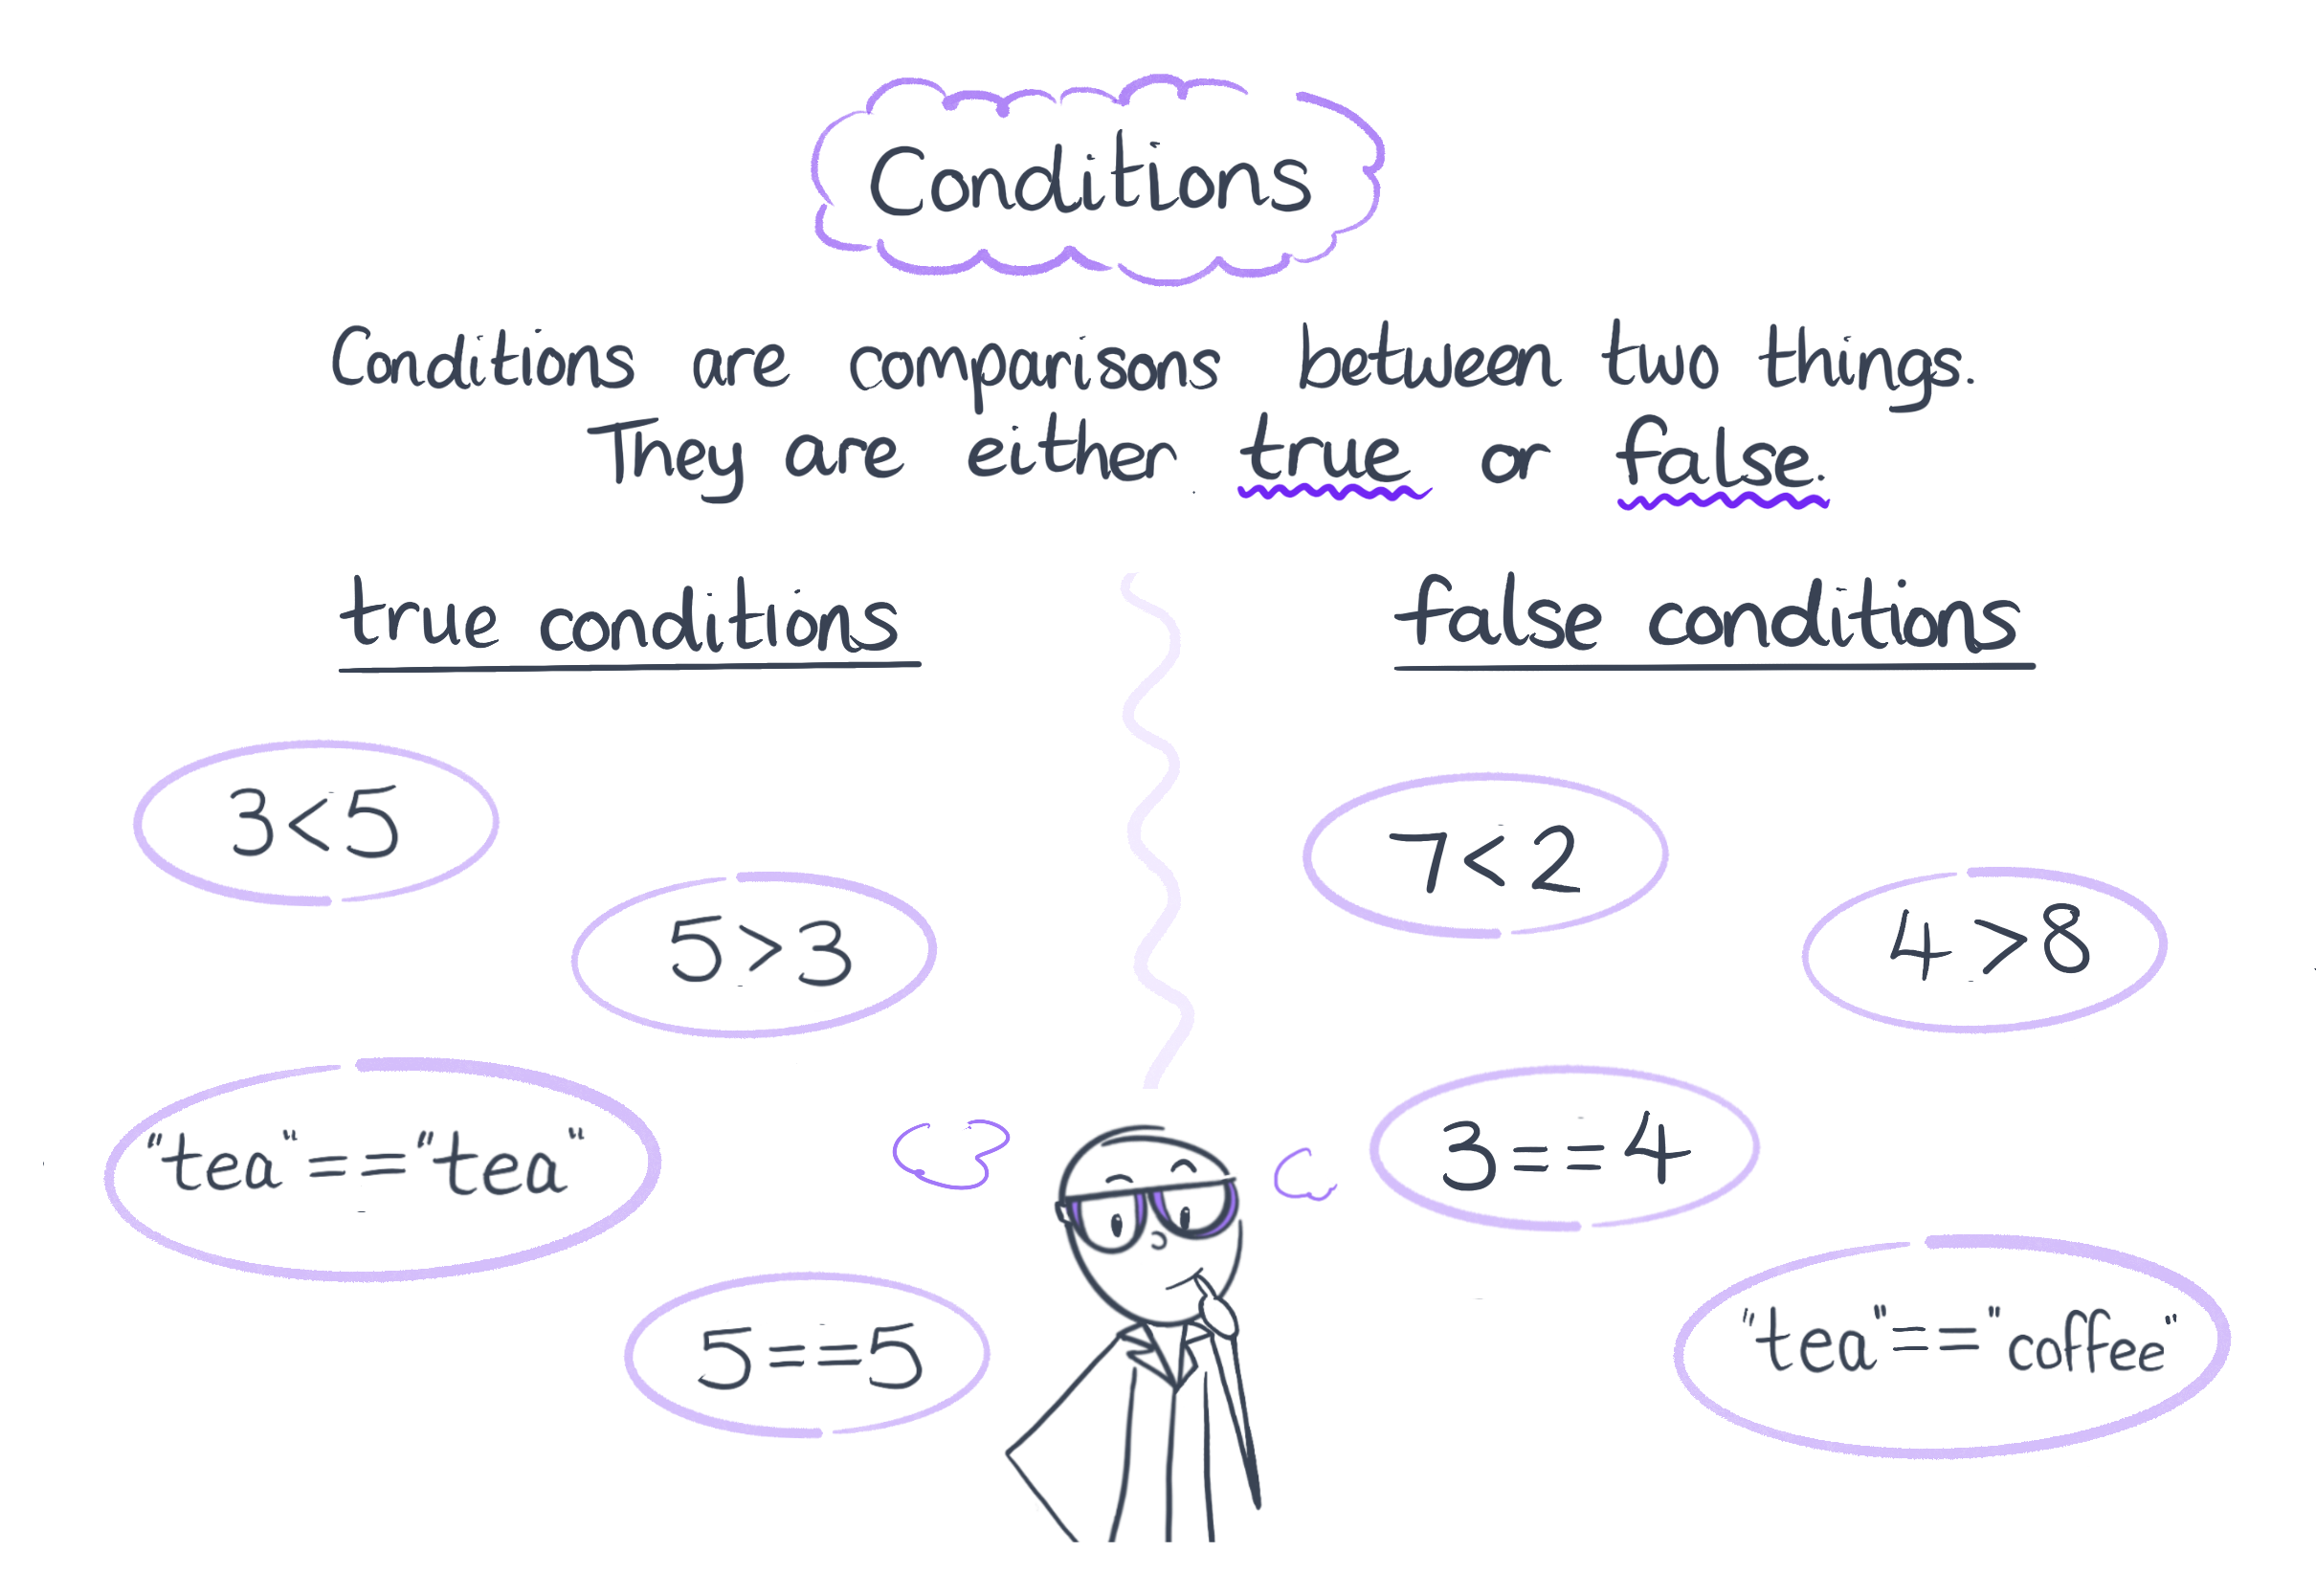 Conditions
Conditions are comparisons between two things.
They are either true or false.
true conditions
false conditions
3<5
5>3
"tea"=="tea"
5==5
7<2
4>8
3==4
"tea"=="coffee"